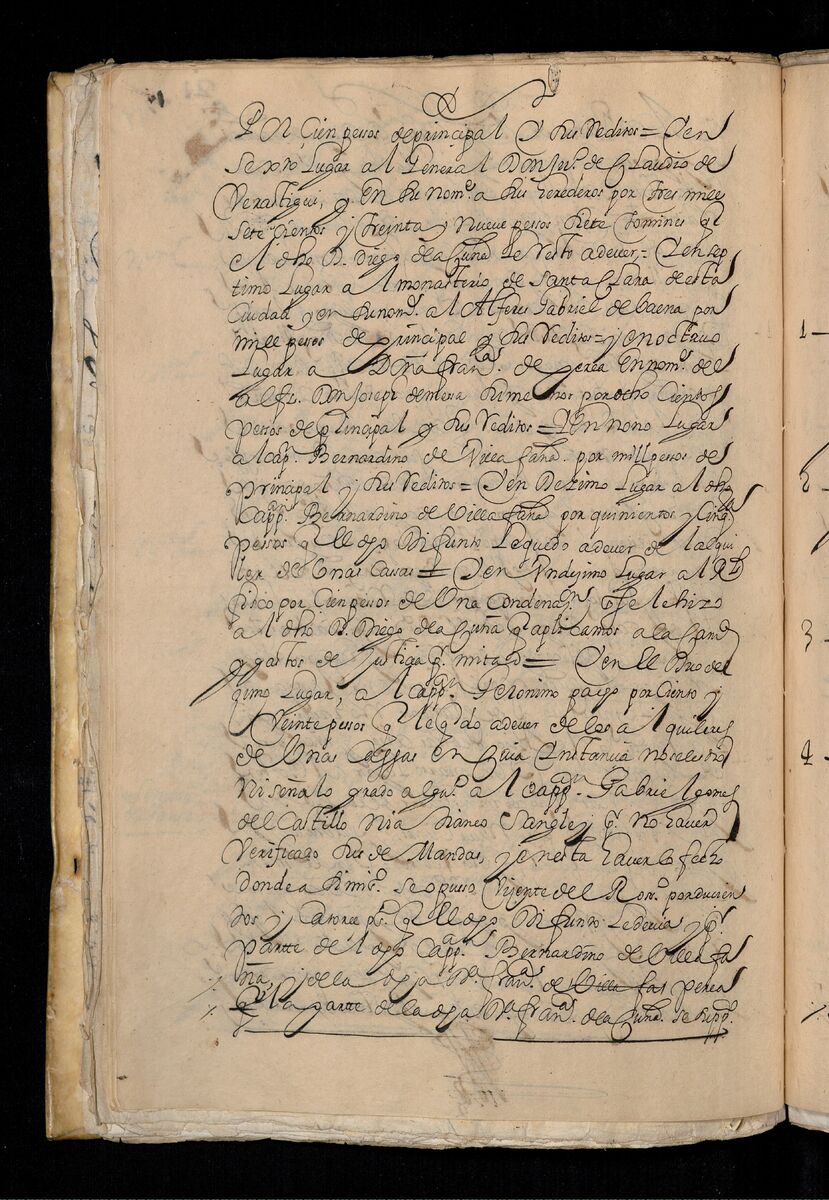 Por Cien pessos de principal y sus Reditos = Y en
sexto Lugar al General Don Ju.º de Claudio de
Verastigui, y En su nom.e a sus herederos por tres mill
setecientos y treinta y Nueve pessos siete tomines q
el dho D. Diego de la Cuña le Resto a dever = Y en sep
timo Lugar al monasterio de Santa Clara de esta
Ciudad y en su nom.e al Alferes Gabriel de baena por
mill pessos de principal y sus Reditos = y en octauo
Lugar a Doña Fran.ca de perea En nom.e del
alfz. Don Joseph de mesa Ximenes por ocho Cientos
pessos de principal y sus Reditos = Y En nono Lugar
al cap.n Bernardino de Villa faña por mill pesos de
principal y sus Reditos = Y en Dezimo Lugar al dho
Capp.n Bernardino de Villa faña por quinientos y Cinq.ta
pessos q El dho Difunto le quedo a dever de el alqui
ler de Unas Cassas = Y en Undezimo Lugar al R.l
fisco por Cien pessos de Una Condenaz.n q se le hizo
al dho D. Diego de la Cuña q aplicamos a la Cam.a
y gastos de Justizia p.r mitad = Y en El Duode
zimo Lugar, al capp.n Geronimo payo por Ciento y
Veinte pessos q le q.do a dever de los alquileres
de Unas Cassas en Cuia Instancia no se les dio
Ni señalo grado algu.º al capp.n Gabriel gomes
del Castillo Ni a Sangley p.r No haver
Verificado sus demandas, y en esta haver lo fecho
donde a simis.º se opusso Vizente del Ros.º por ducien
tos y Catorce p.s q El dho Difunto le deuia y p.r
partte de el dho Capp.n Bernardino de Villa fa
ña, y de la dha D.a Fran.ca de Villa fas perea
y p.r la partte de la dha D.a Fran.ca de la Cuña se supp.co